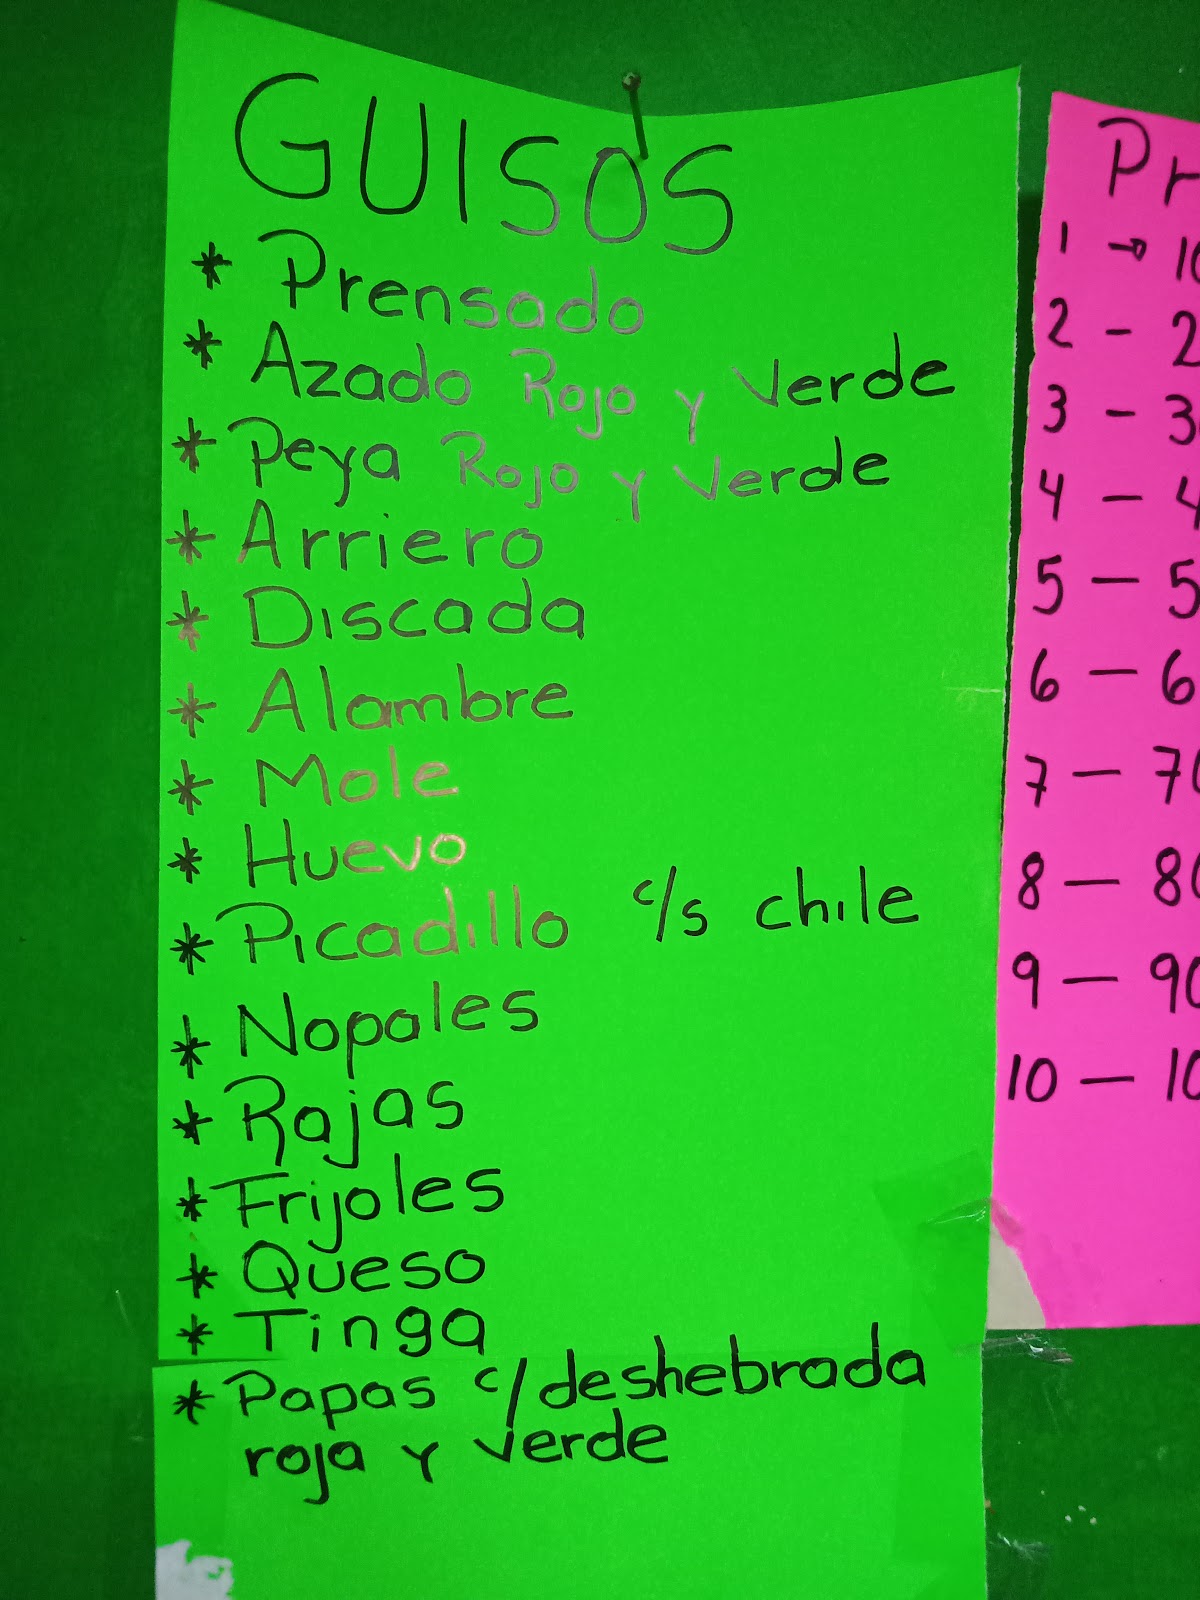 GUISOS
* Prensado
* Azado Rojo y Verde
* Peya Rojo y Verde
* Arriero
* Discada
* Alambre
* Mole
* Huevo
* Picadillo c/s chile
* Nopales
* Rajas
* Frijoles
* Queso
* Tinga
* Papas c/deshebrada
roja y verde
Pr
1 → 10
2 - 2
3 - 3
4 - 4
5 - 5
6 - 6
7 - 70
8 - 80
9 - 90
10 - 10